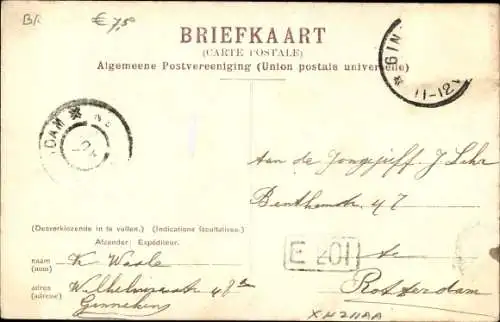 B/.
€ 7,50
BRIEFKAART
(CARTE POSTALE)
Algemeene Postvereeniging (Union postale universelle)
* GIN
11-12V
DAM *
Aan de Jongejuff. J. Lehr
Benthemstr. 47
te
Rotterdam
(Desverkiezende in te vullen.) (Indications facultatives.)
Afzender: Expéditeur.
naam
(nom)
K
adres
(adresse)
Wilhelminastraat
Ginneken
E 201
XH211AA